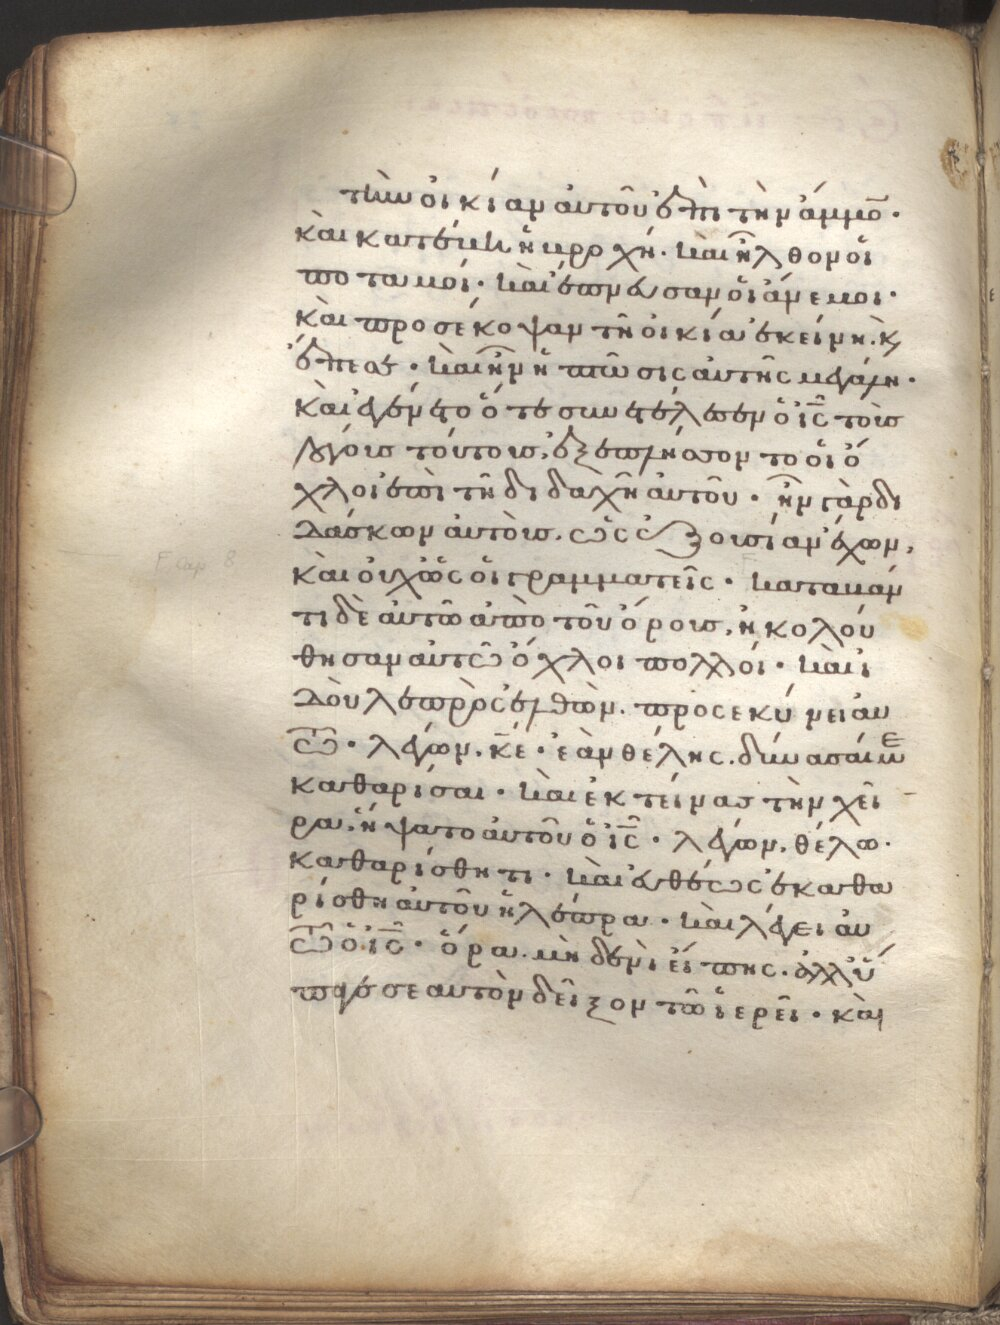 τὴν οἰκίαν αὐτοῦ ἐπὶ τὴν ἄμμο̅·
καὶ κατέβη ἡ βροχή· καὶ ἦλθον οἱ
ποταμοί· καὶ ἔπνευσαν οἱ ἄνεμοι·
καὶ προσέκοψαν τῇ οἰκίᾳ ἐκείνῃ. κ
ἔπεσε· καὶ ἦν ἡ πτῶσις αὐτῆς μεγάλη·
καὶ ἐγένετο ὅτε συνετέλεσεν ὁ ις τοὺς
λόγους τούτους, ἐξεπλήσσοντο οἱ ὄ
χλοι ἐπὶ τῇ διδαχῇ αὐτοῦ· ἦν γὰρ δι
δάσκων αὐτοὺς, ὡς ἐξουσίαν ἔχων,
καὶ οὐχ ὡς οἱ γραμματεῖς· καταβάν
τι δὲ αὐτῶ ἀπὸ τοῦ ὄρους, ἠκολού
θησαν αὐτῶ ὄχλοι πολλοί· καὶ ἰ
δοὺ λεπρὸς ἐλθὼν, προσεκύνει αὐ
τῶ· λέγων, κε· ἐὰν θέλῃς, δύνασαί με
καθαρίσαι· καὶ ἐκτείνας τὴν χεῖ
ρα, ἥψατο αὐτοῦ ὁ ις· λέγων, θέλω·
καθαρίσθητι· καὶ εὐθέως ἐκαθα
ρίσθη αὐτοῦ ἡ λέπρα· καὶ λέγει αὐ
τῶ ὁ ις· ὅρα, μηδενὶ εἴπῃς, ἀλλ' ὕ
παγε σεαυτὸν δεῖξον τῶ ἱερεῖ· καὶ